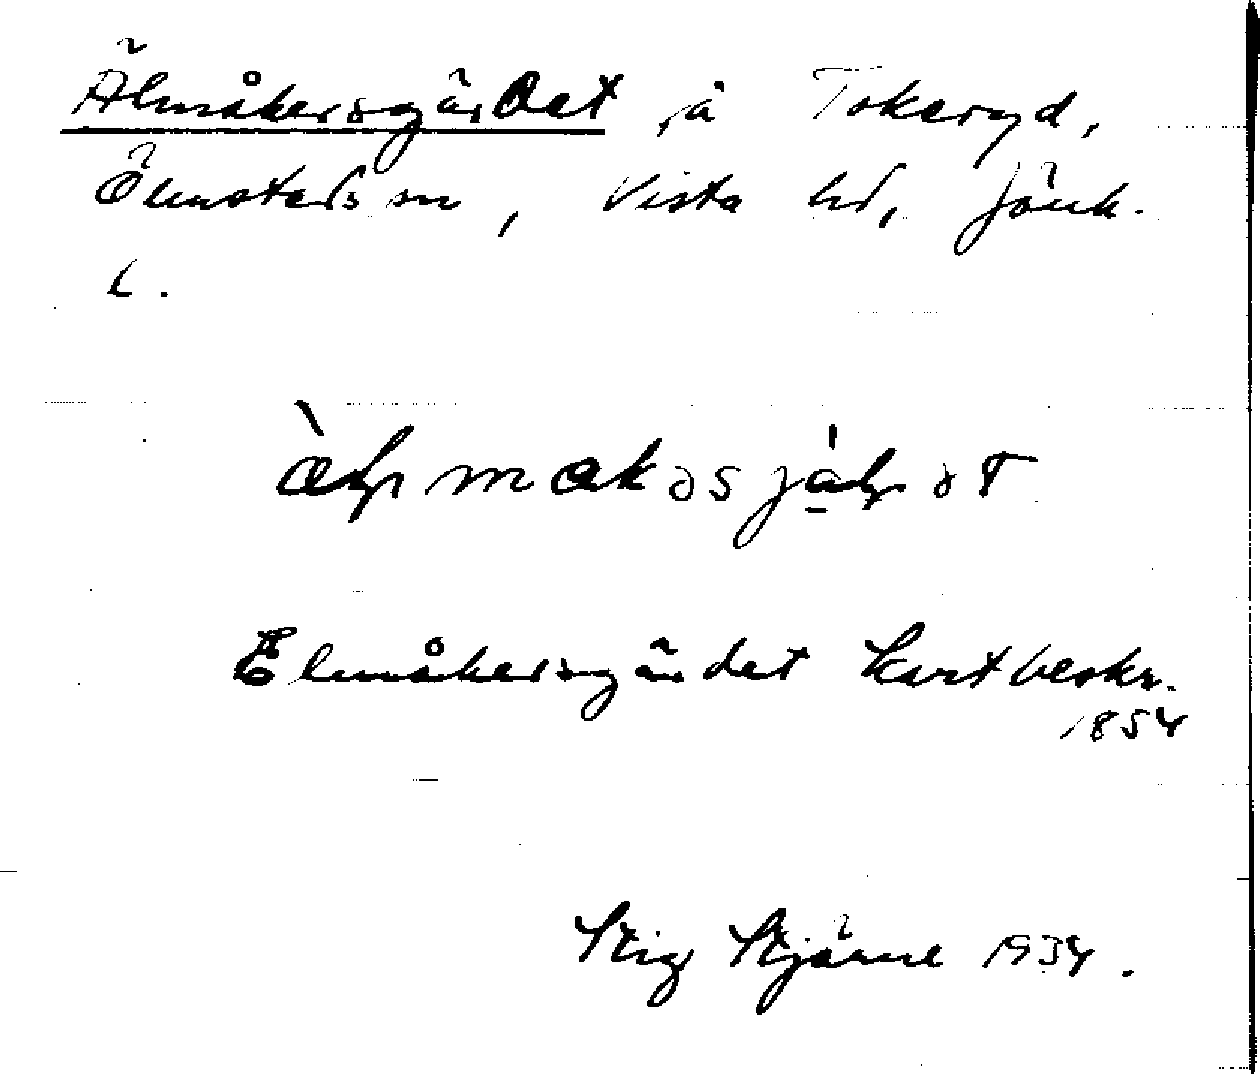 Älmåkersgärdet, å Tokeryd,
Ölmstads sn, Vista hd, Jönk.
l.
Elmåkersgärdet Kartbeskr.
1854
Stig Stjärne 1934.